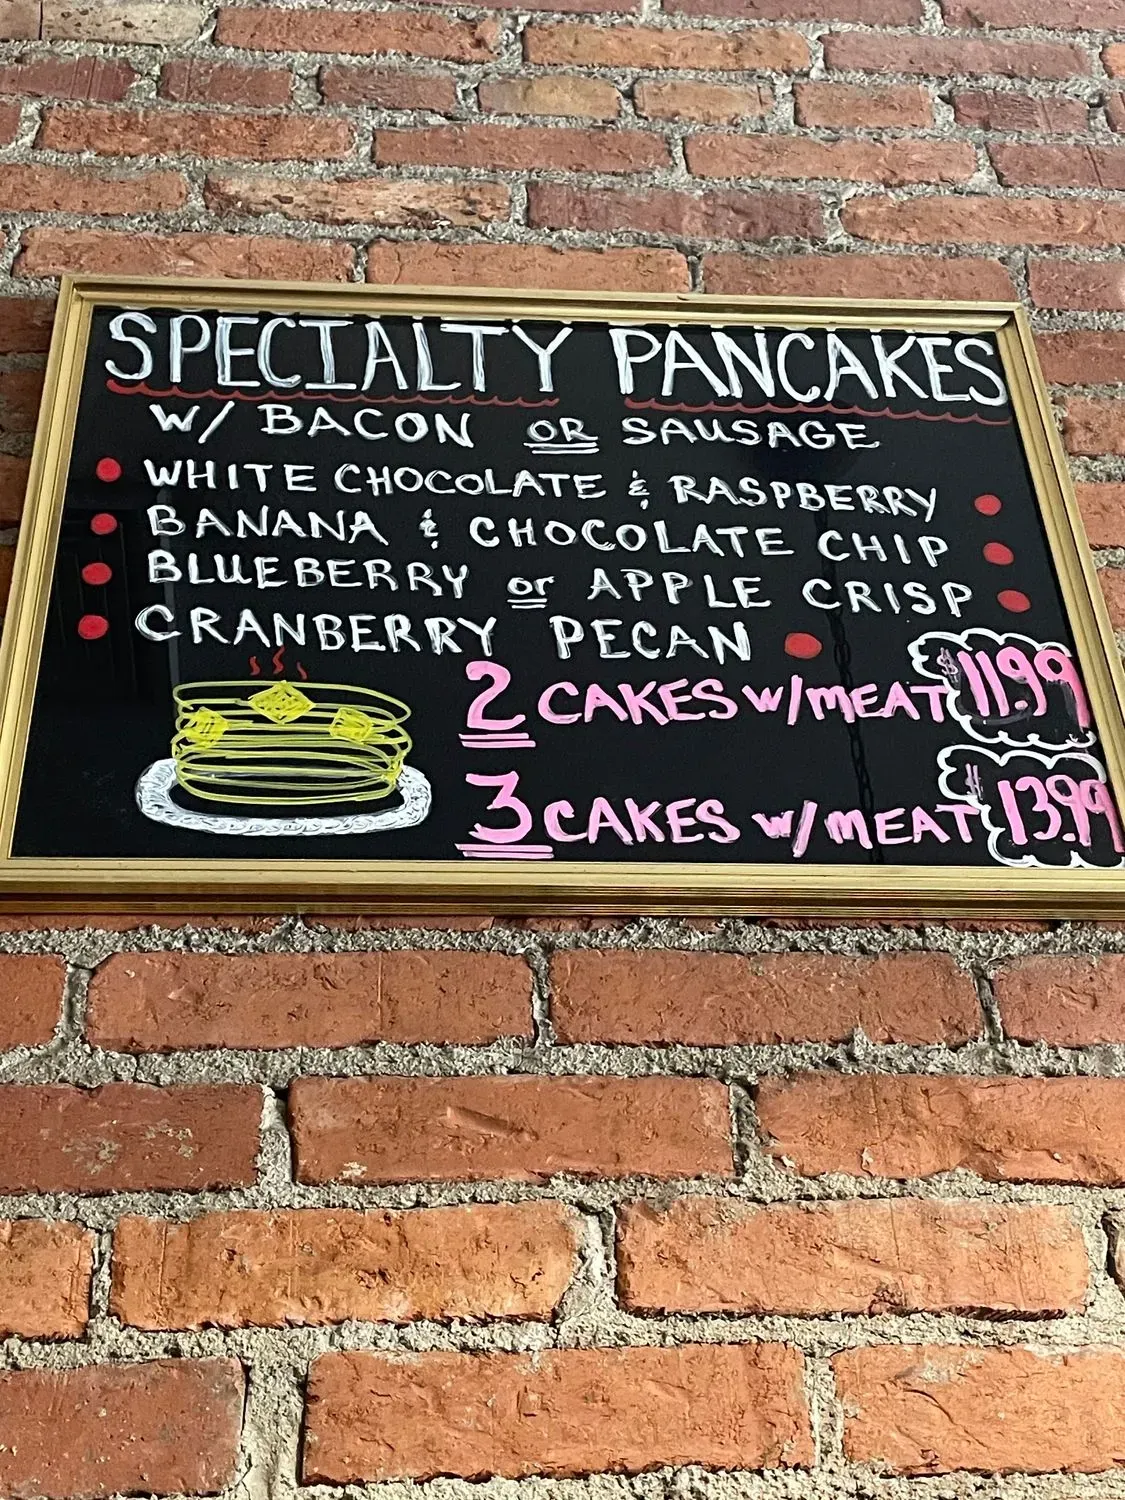 SPECIALTY PANCAKES
W/ BACON OR SAUSAGE
WHITE CHOCOLATE & RASPBERRY
BANANA & CHOCOLATE CHIP
BLUEBERRY or APPLE CRISP
CRANBERRY PECAN
2 CAKES w/MEAT $11.99
3 CAKES w/MEAT $13.99